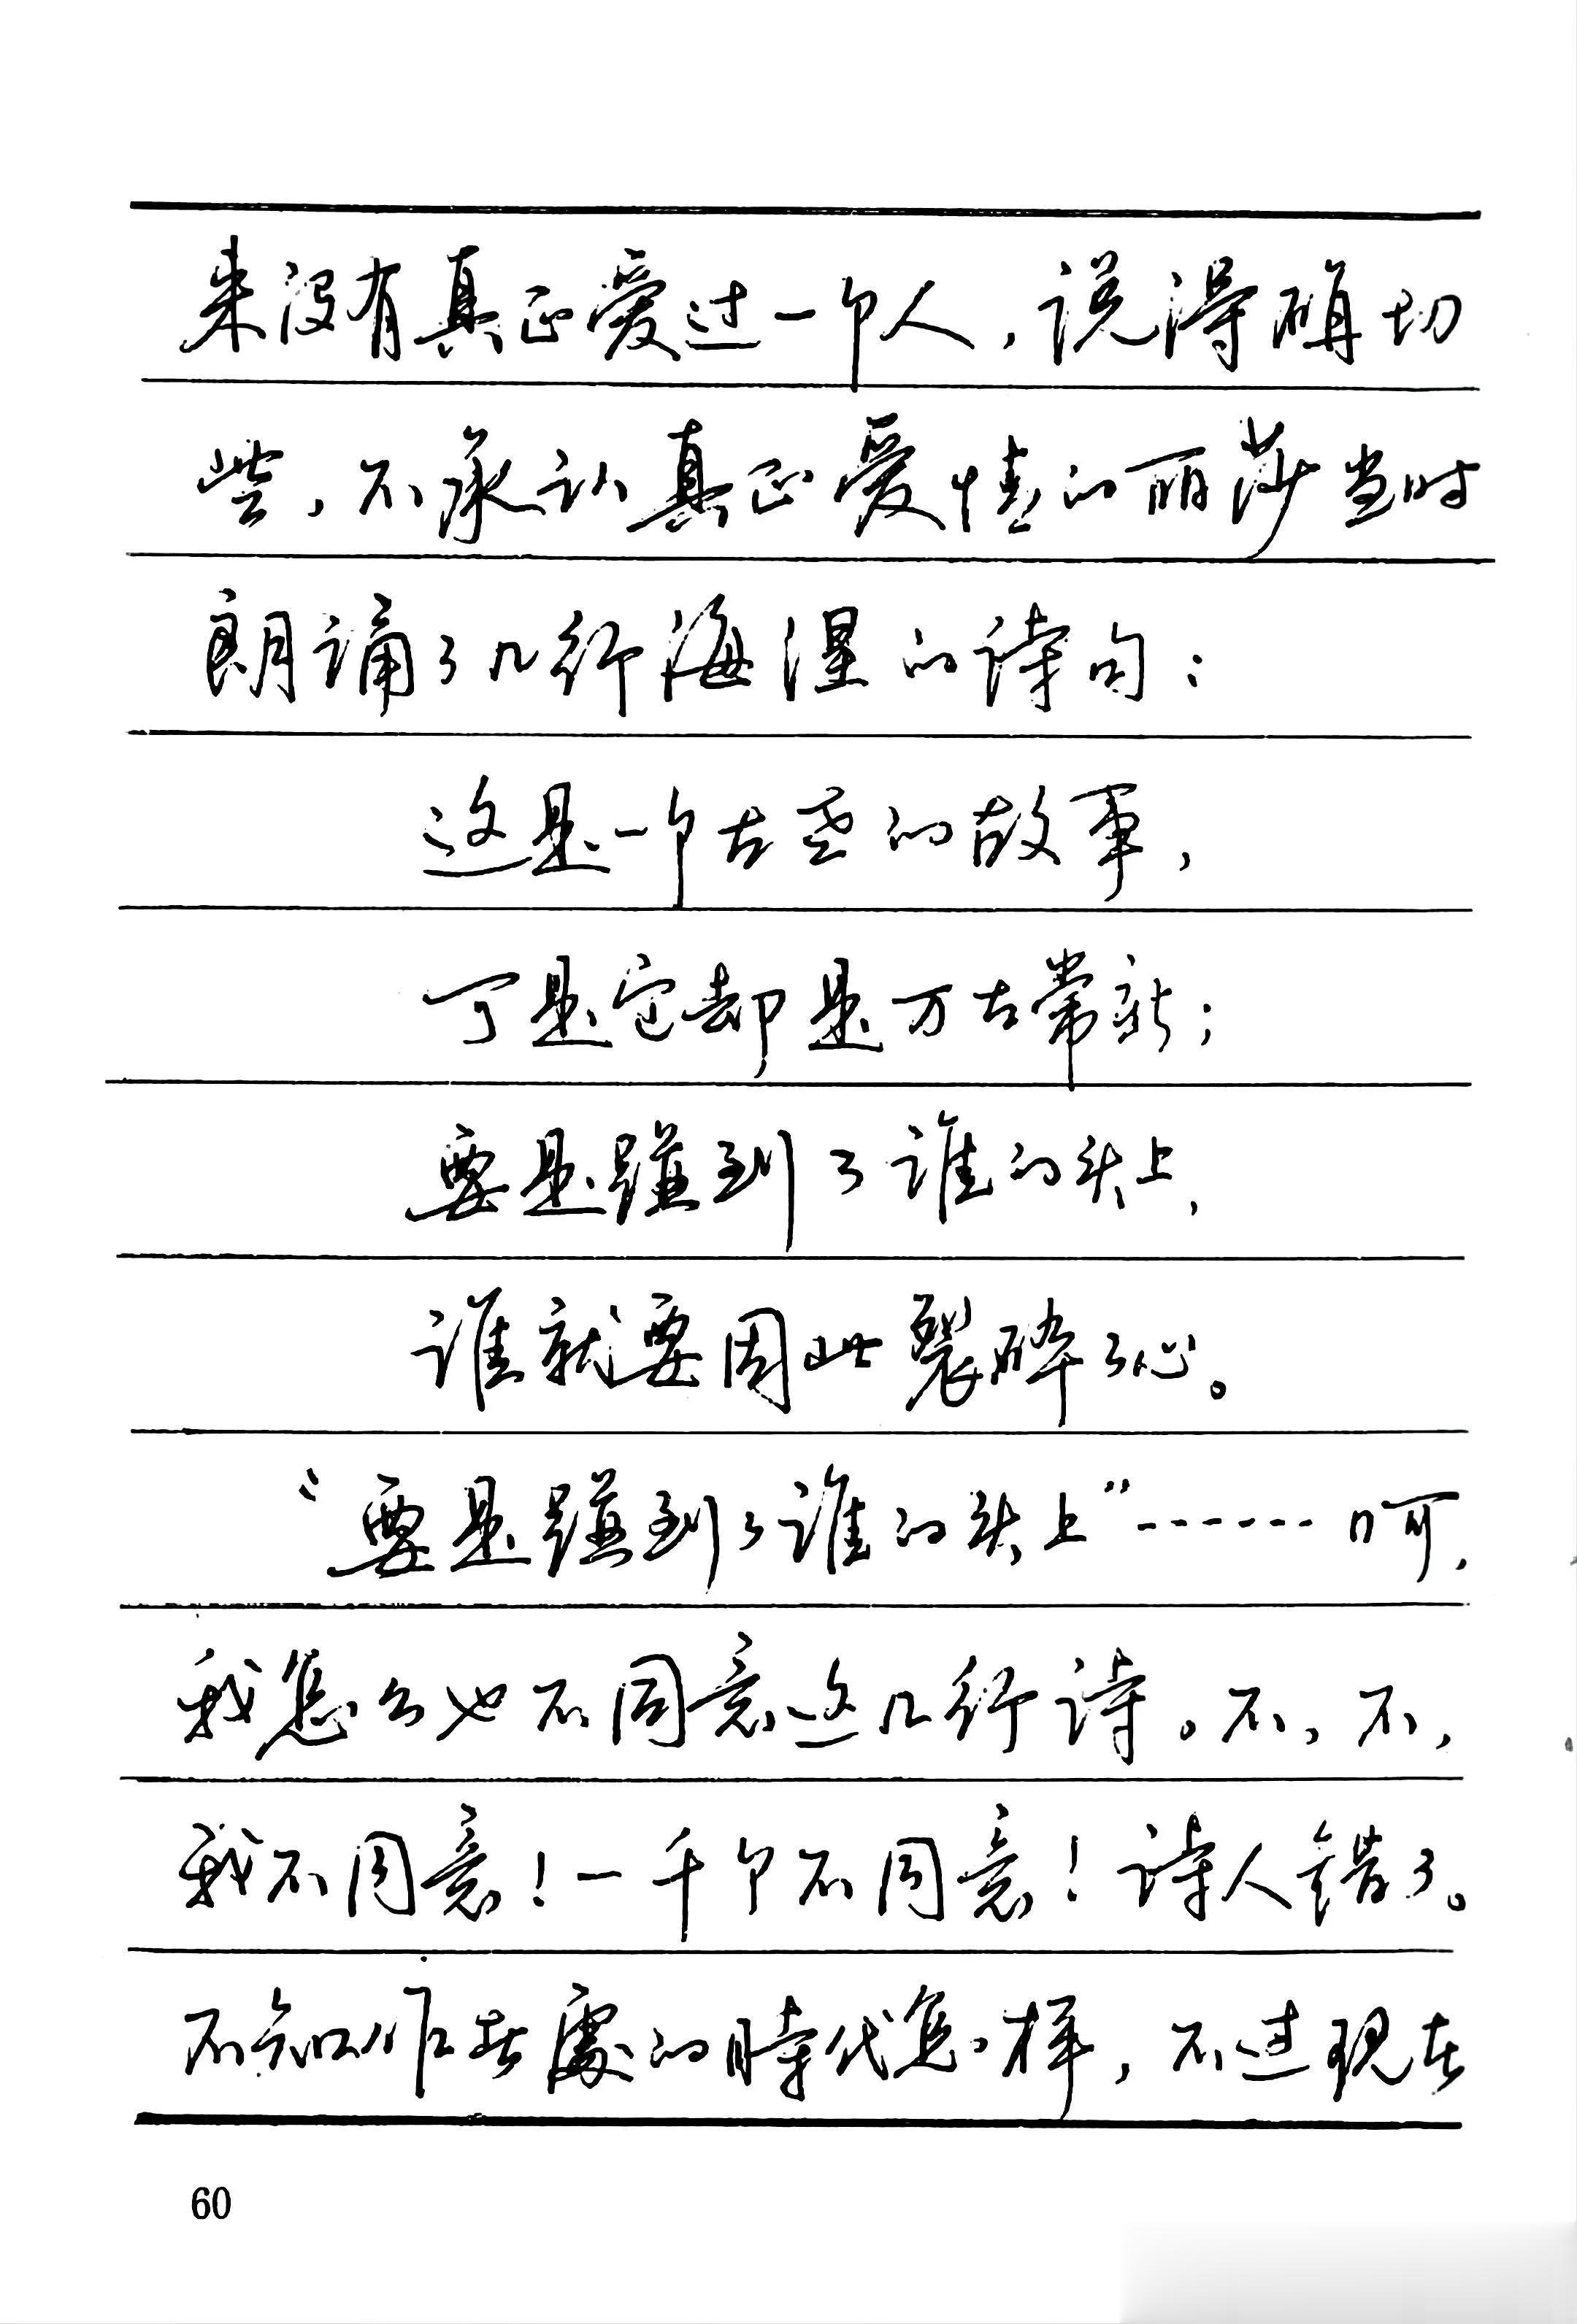 来没有真正爱过一个人，说得确切
些，不承认真正爱情的丽莎当时
朗诵了几行海涅的诗句：
这是一个古老的故事，
可是它却是万古常新；
要是碰到了谁的头上，
谁就要因此裂碎了心。
“要是碰到了谁的头上”……呵，
我怎么也不同意这几行诗。不，不，
我不同意！一千个不同意！诗人错了。
不知作者處的時代怎样，不过现在
60